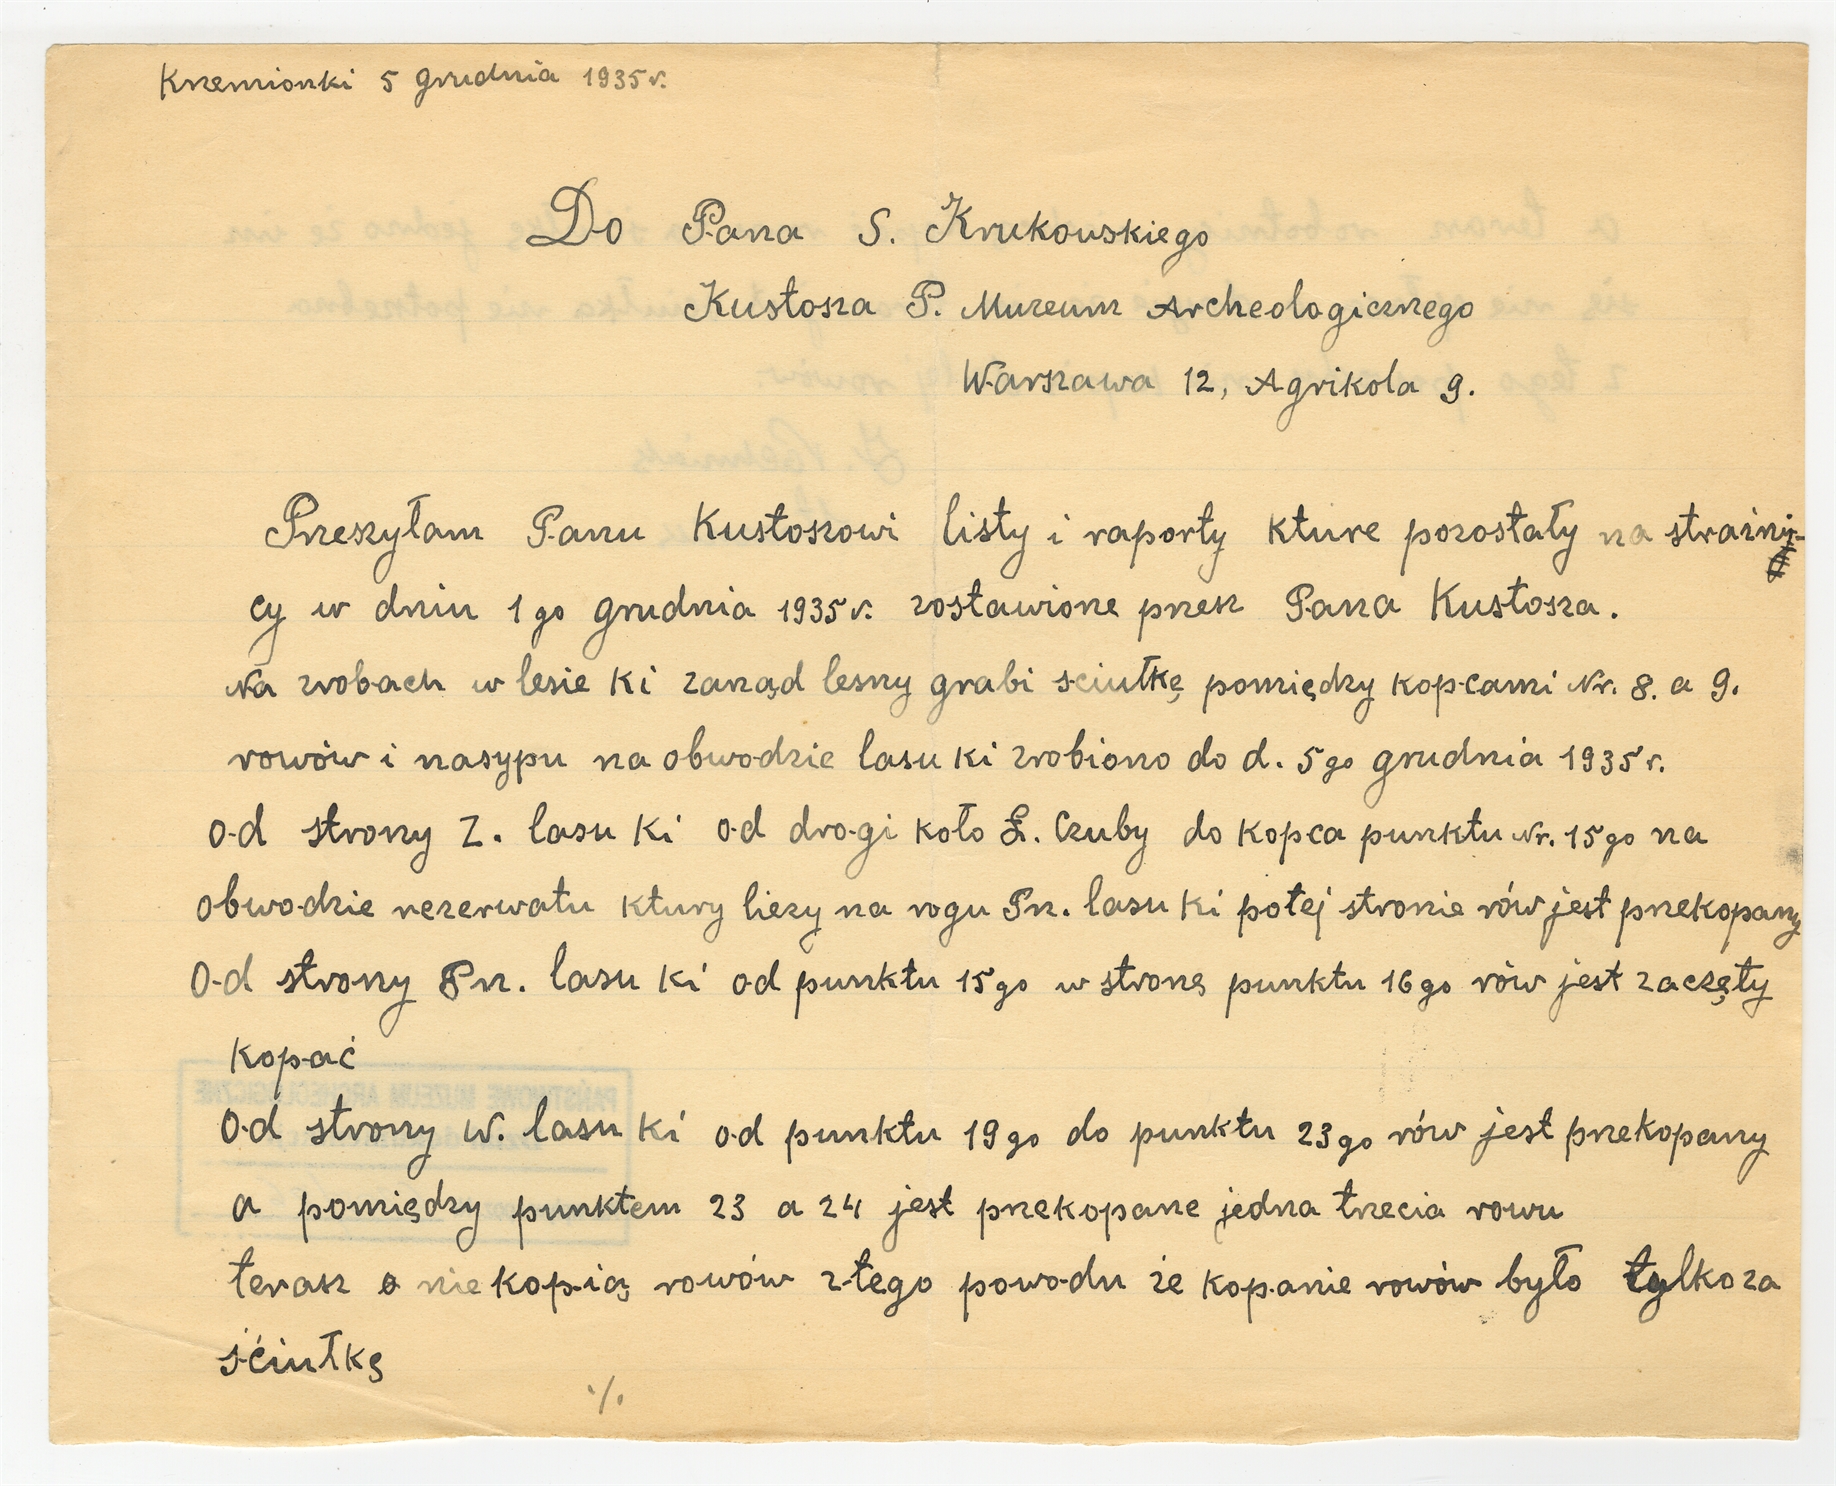 Krzemionki 5 grudnia 1935 r.
Do Pana S. Krukowskiego
Kustosza P. Muzeum Archeologicznego
Warszawa 12, Agrikola 9.
Przeszyłam Panu Kustoszowi listy i raporty kture pozostały na strażni-
cy w dniu 1 go grudnia 1935 r. zostawione przez Pana Kustosza.
Na zrobach w lesie Ki zarząd lesny grabi sciułkę pomiędzy kopcami Nr. 8. a 9.
rowów i nasypu na obwodzie lasu Ki zrobiono do d. 5 go grudnia 1935 r.
Od strony Z. lasu Ki od drogi koło Ł. Czuby do kopca punktu Nr. 15 go na
obwodzie rezerwatu ktury liezy na rogu Pn. lasu Ki potej stronie rów jest przekopany
Od strony Pn. lasu Ki od punktu 15 go w stronę punktu 16 go rów jest zaczęty
kopać
Od strony W. lasu Ki od punktu 19 go do punktu 23 go rów jest przekopany
a pomiędzy punktem 23 a 24 jest przekopane jedna trzecia rowu
terasz nie kopią rowów z tego powodu że kopanie rowów było tylko za
sćiułkę
./.
PAŃSTWOWE MUZEUM ARCHEOLOGICZNE